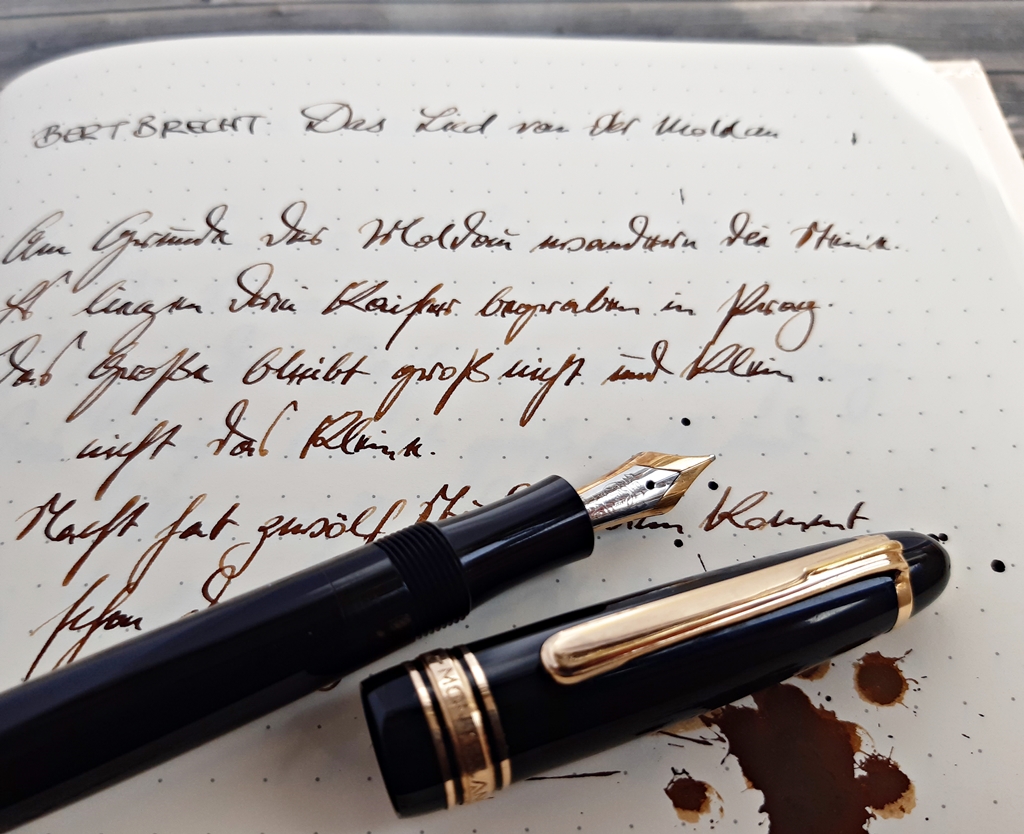 BERT BRECHT. Das Lied von der Moldau
Am Grunde der Moldau wandern die Steine.
Es liegen drei Kaiser begraben in Prag.
Das Große bleibt groß nicht und klein
nicht das Kleine.
Nacht hat zwölf kommt
schon